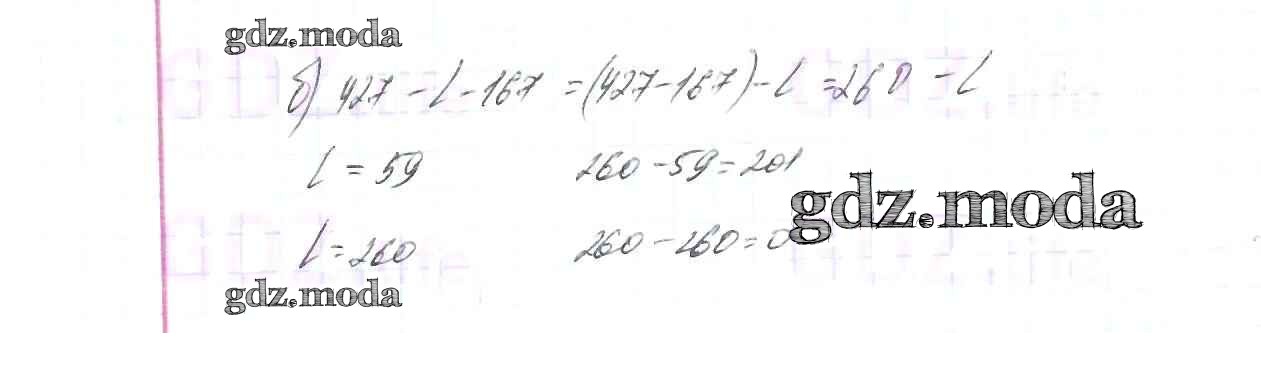 gdz.moda
б) 427 - l - 167 = (427 - 167) - l = 260 - l
l = 59 260 - 59 = 201
gdz.moda
l = 260 260 - 260 = 0
gdz.moda